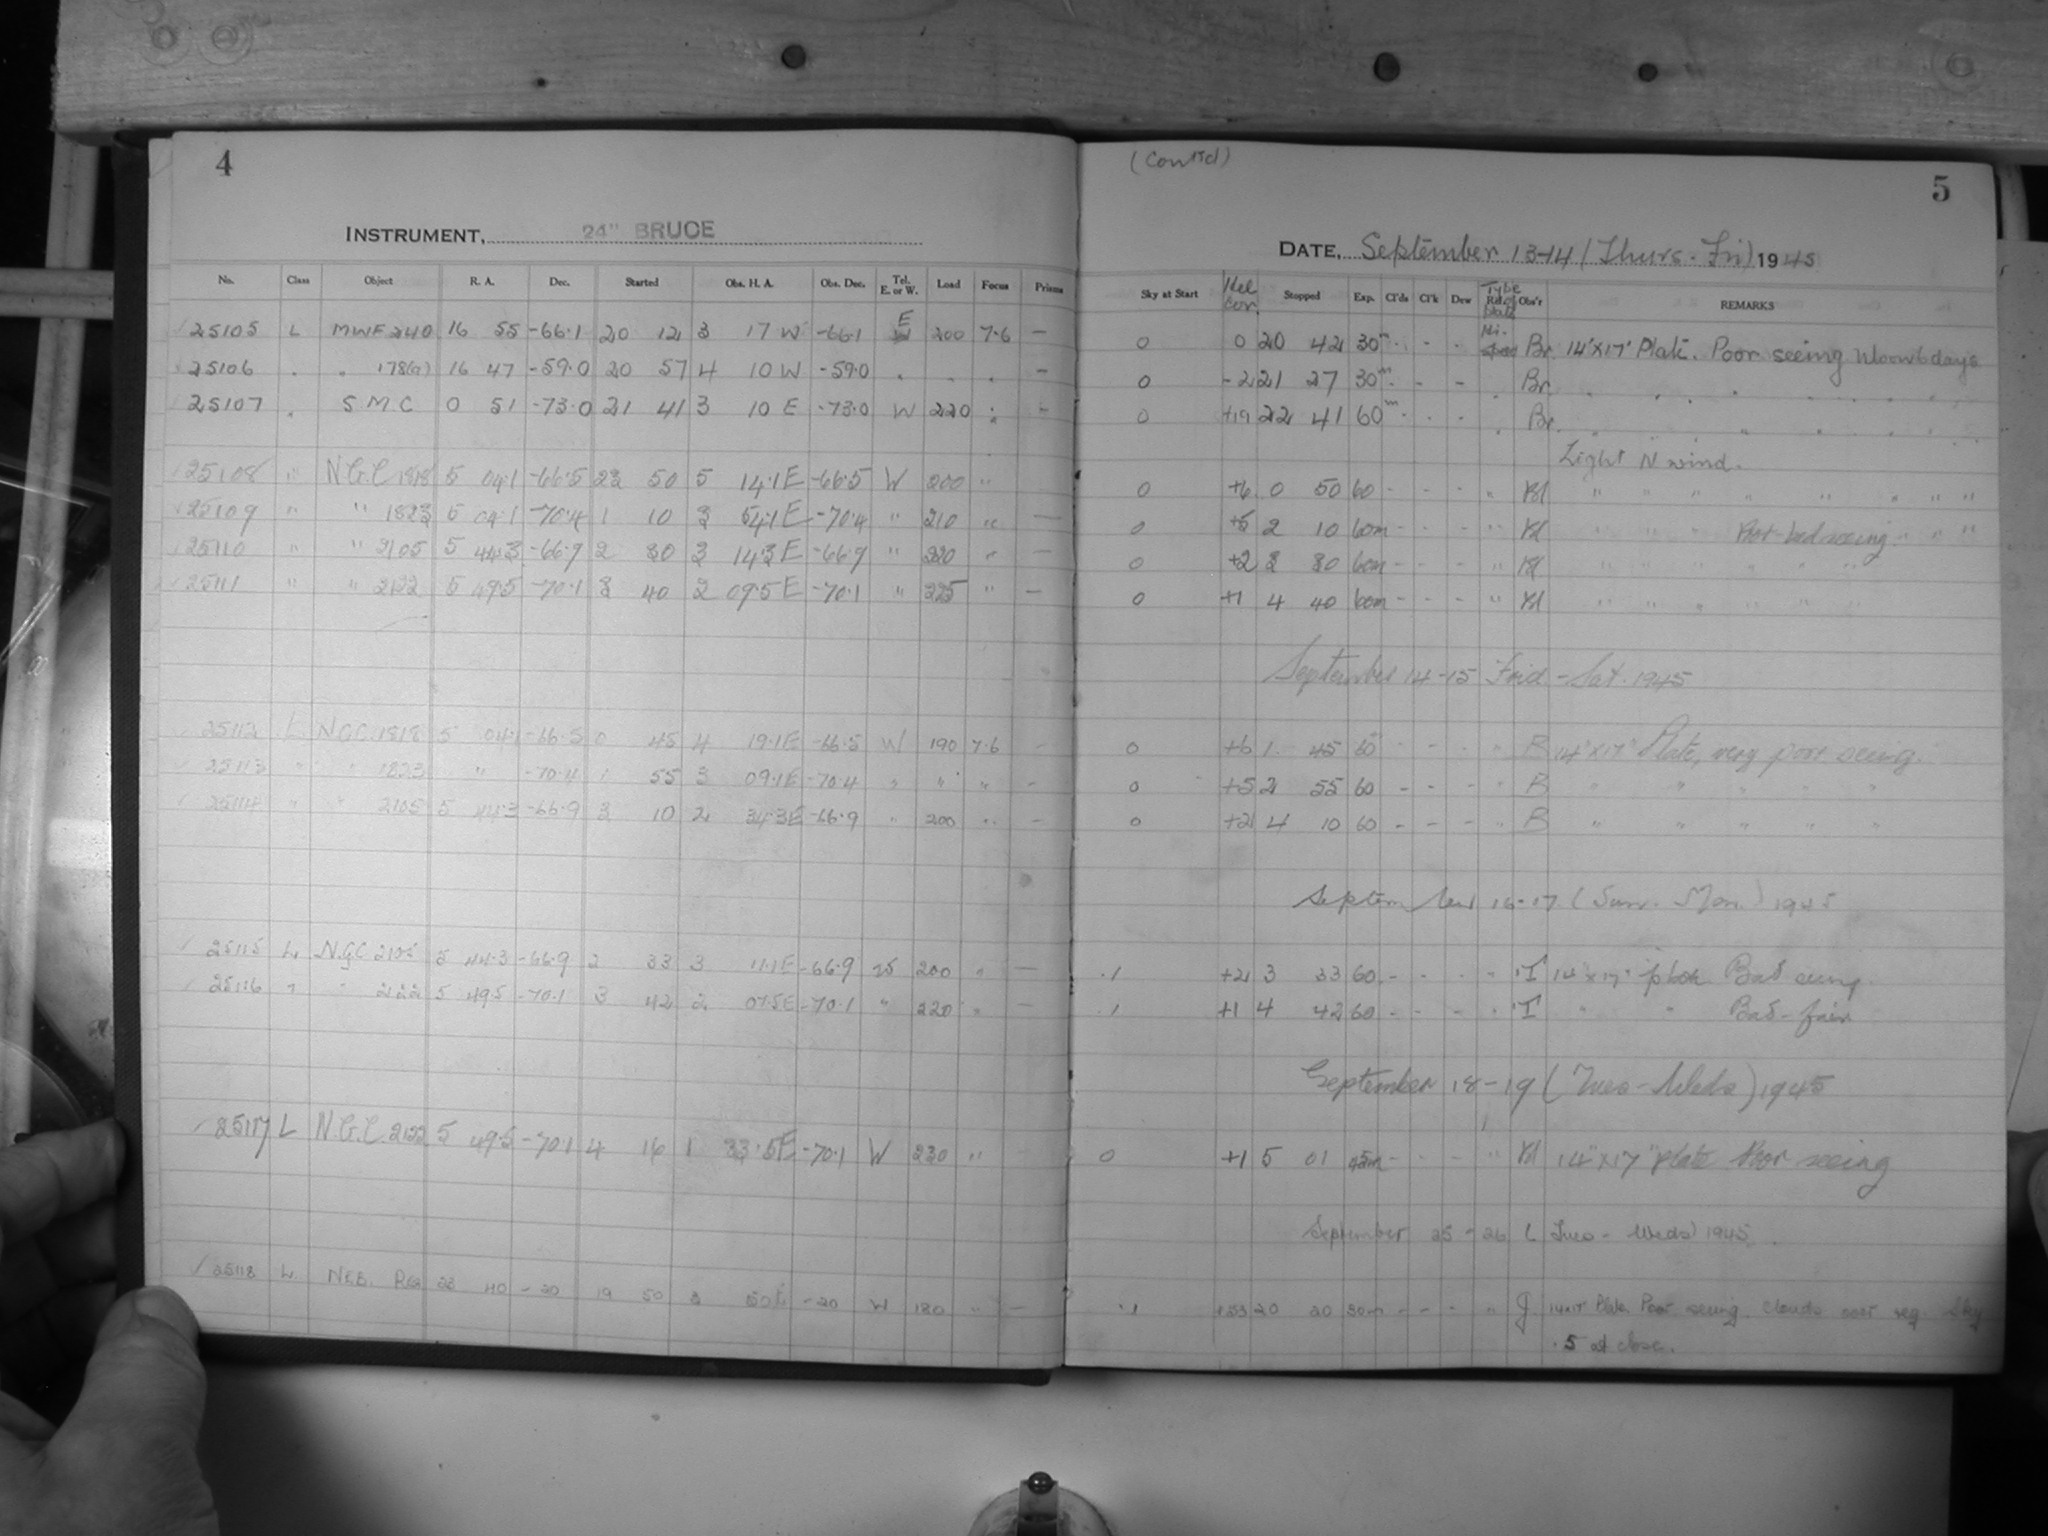 4
INSTRUMENT, 24" BRUCE
No. Class Object R. A. Dec. Started Obs. H. A. Obs. Dec. Tel. E. or W. Load Focus Prisms
25105 L MWF 240 16 55 -66.1 20 12 3 17 W -66.1 E 200 7.6 —
25106 " " 178(a) 16 47 -59.0 20 57 4 10 W -59.0 " " " —
25107 " S.M.C 0 51 -73.0 21 41 3 10 E -73.0 W 220 " —
25108 " N.G.C 1818 5 04.1 -66.5 23 50 5 14.1E -66.5 W 200 "
25109 " " 1823 5 04.1 -70.4 1 10 3 54.1E -70.4 " 210 " —
25110 " " 2105 5 44.3 -66.9 2 30 3 14.3E -66.9 " 220 " —
25111 " " 2122 5 49.5 -70.1 3 40 2 09.5E -70.1 " 225 " —
25112 L N.G.C. 1818 5 04.1 -66.5 0 45 4 19.1E -66.5 W 190 7.6 —
25113 " " 1823 " -70.4 1 55 3 09.1E -70.4 " " " —
25114 " " 2105 5 44.3 -66.9 3 10 2 34.3E -66.9 " 200 " —
25115 L N.G.C 2105 5 44.3 -66.9 2 33 3 11.1E -66.9 W 200 " —
25116 " " 2122 5 49.5 -70.1 3 42 2 07.5E -70.1 " 220 " —
25117 L N.G.C. 2122 5 49.5 -70.1 4 16 1 33.5E -70.1 W 230 " —
25118 L NEB. Reg 23 40 -20 19 50 3 50E -20 W 180 " —
(Contd)
5
DATE, September 13-14 (Thurs - Fri) 1945
Sky at Start Stopped Exp. Cl'ds Cl'k Dew Type of plate Obs'r REMARKS
0 0 20 42 30m - - - Br 14"x17" Plate. Poor seeing
0 -2 21 27 30m - - - " Br " " " "
0 +19 22 41 60m - - - " Br " " " "
Light N wind.
0 +6 0 50 60 - - - " " " " " "
0 +5 2 10 60m - - - " " " " seeing " "
0 +2 3 30 60m - - - " " " " " "
0 +1 4 40 60m - - - " " " " " "
September 14-15 Frid - Sat. 1945
0 +6 1 45 60 - - - " B 14"x17" Plate, very poor seeing.
0 +5 2 55 60 - - - " B " " " " "
0 +2 4 10 60 - - - " B " " " " "
September 16-17 (Sun. Mon.) 1945
.1 +2 3 33 60 - - - " T 14"x17" plate Bad seeing
.1 +1 4 42 60 - - - " T " " Bad-fair
September 18-19 (Tues-Weds) 1945
0 +1 5 01 45m - - - " 14"x17" plate Poor seeing
September 25-26 (Tues - Weds) 1945.
.1 +33 20 20 30m - - - " J 14x17 Plate Poor seeing. Clouds over reg. Sky
.5 at close.